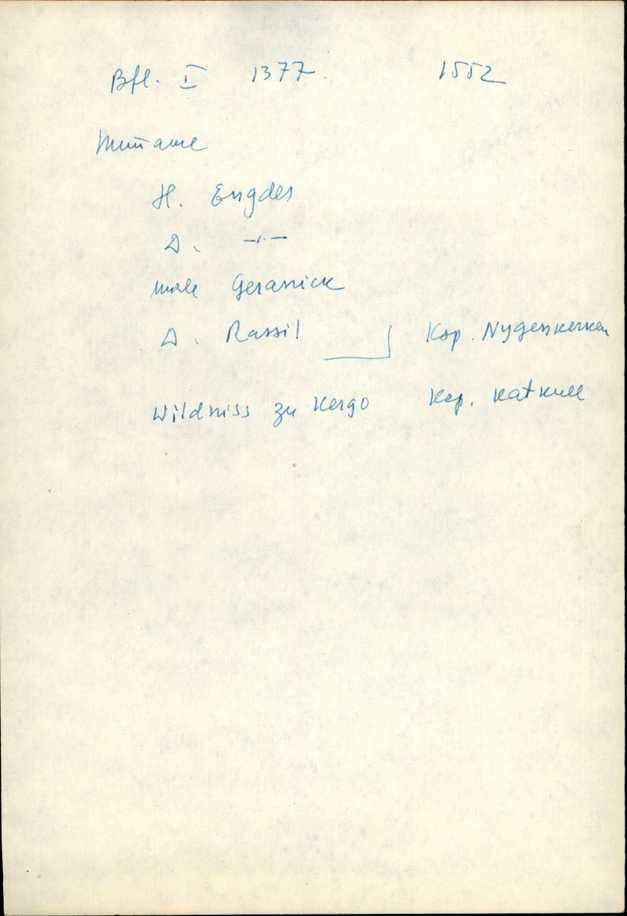 Bfl. I 1377. 1552
H. Engdes
D. -"-
mole Gerasnick
D. Rassil Ksp. Nygenkerken
Wildniss zu Kergo Ksp. Katkull